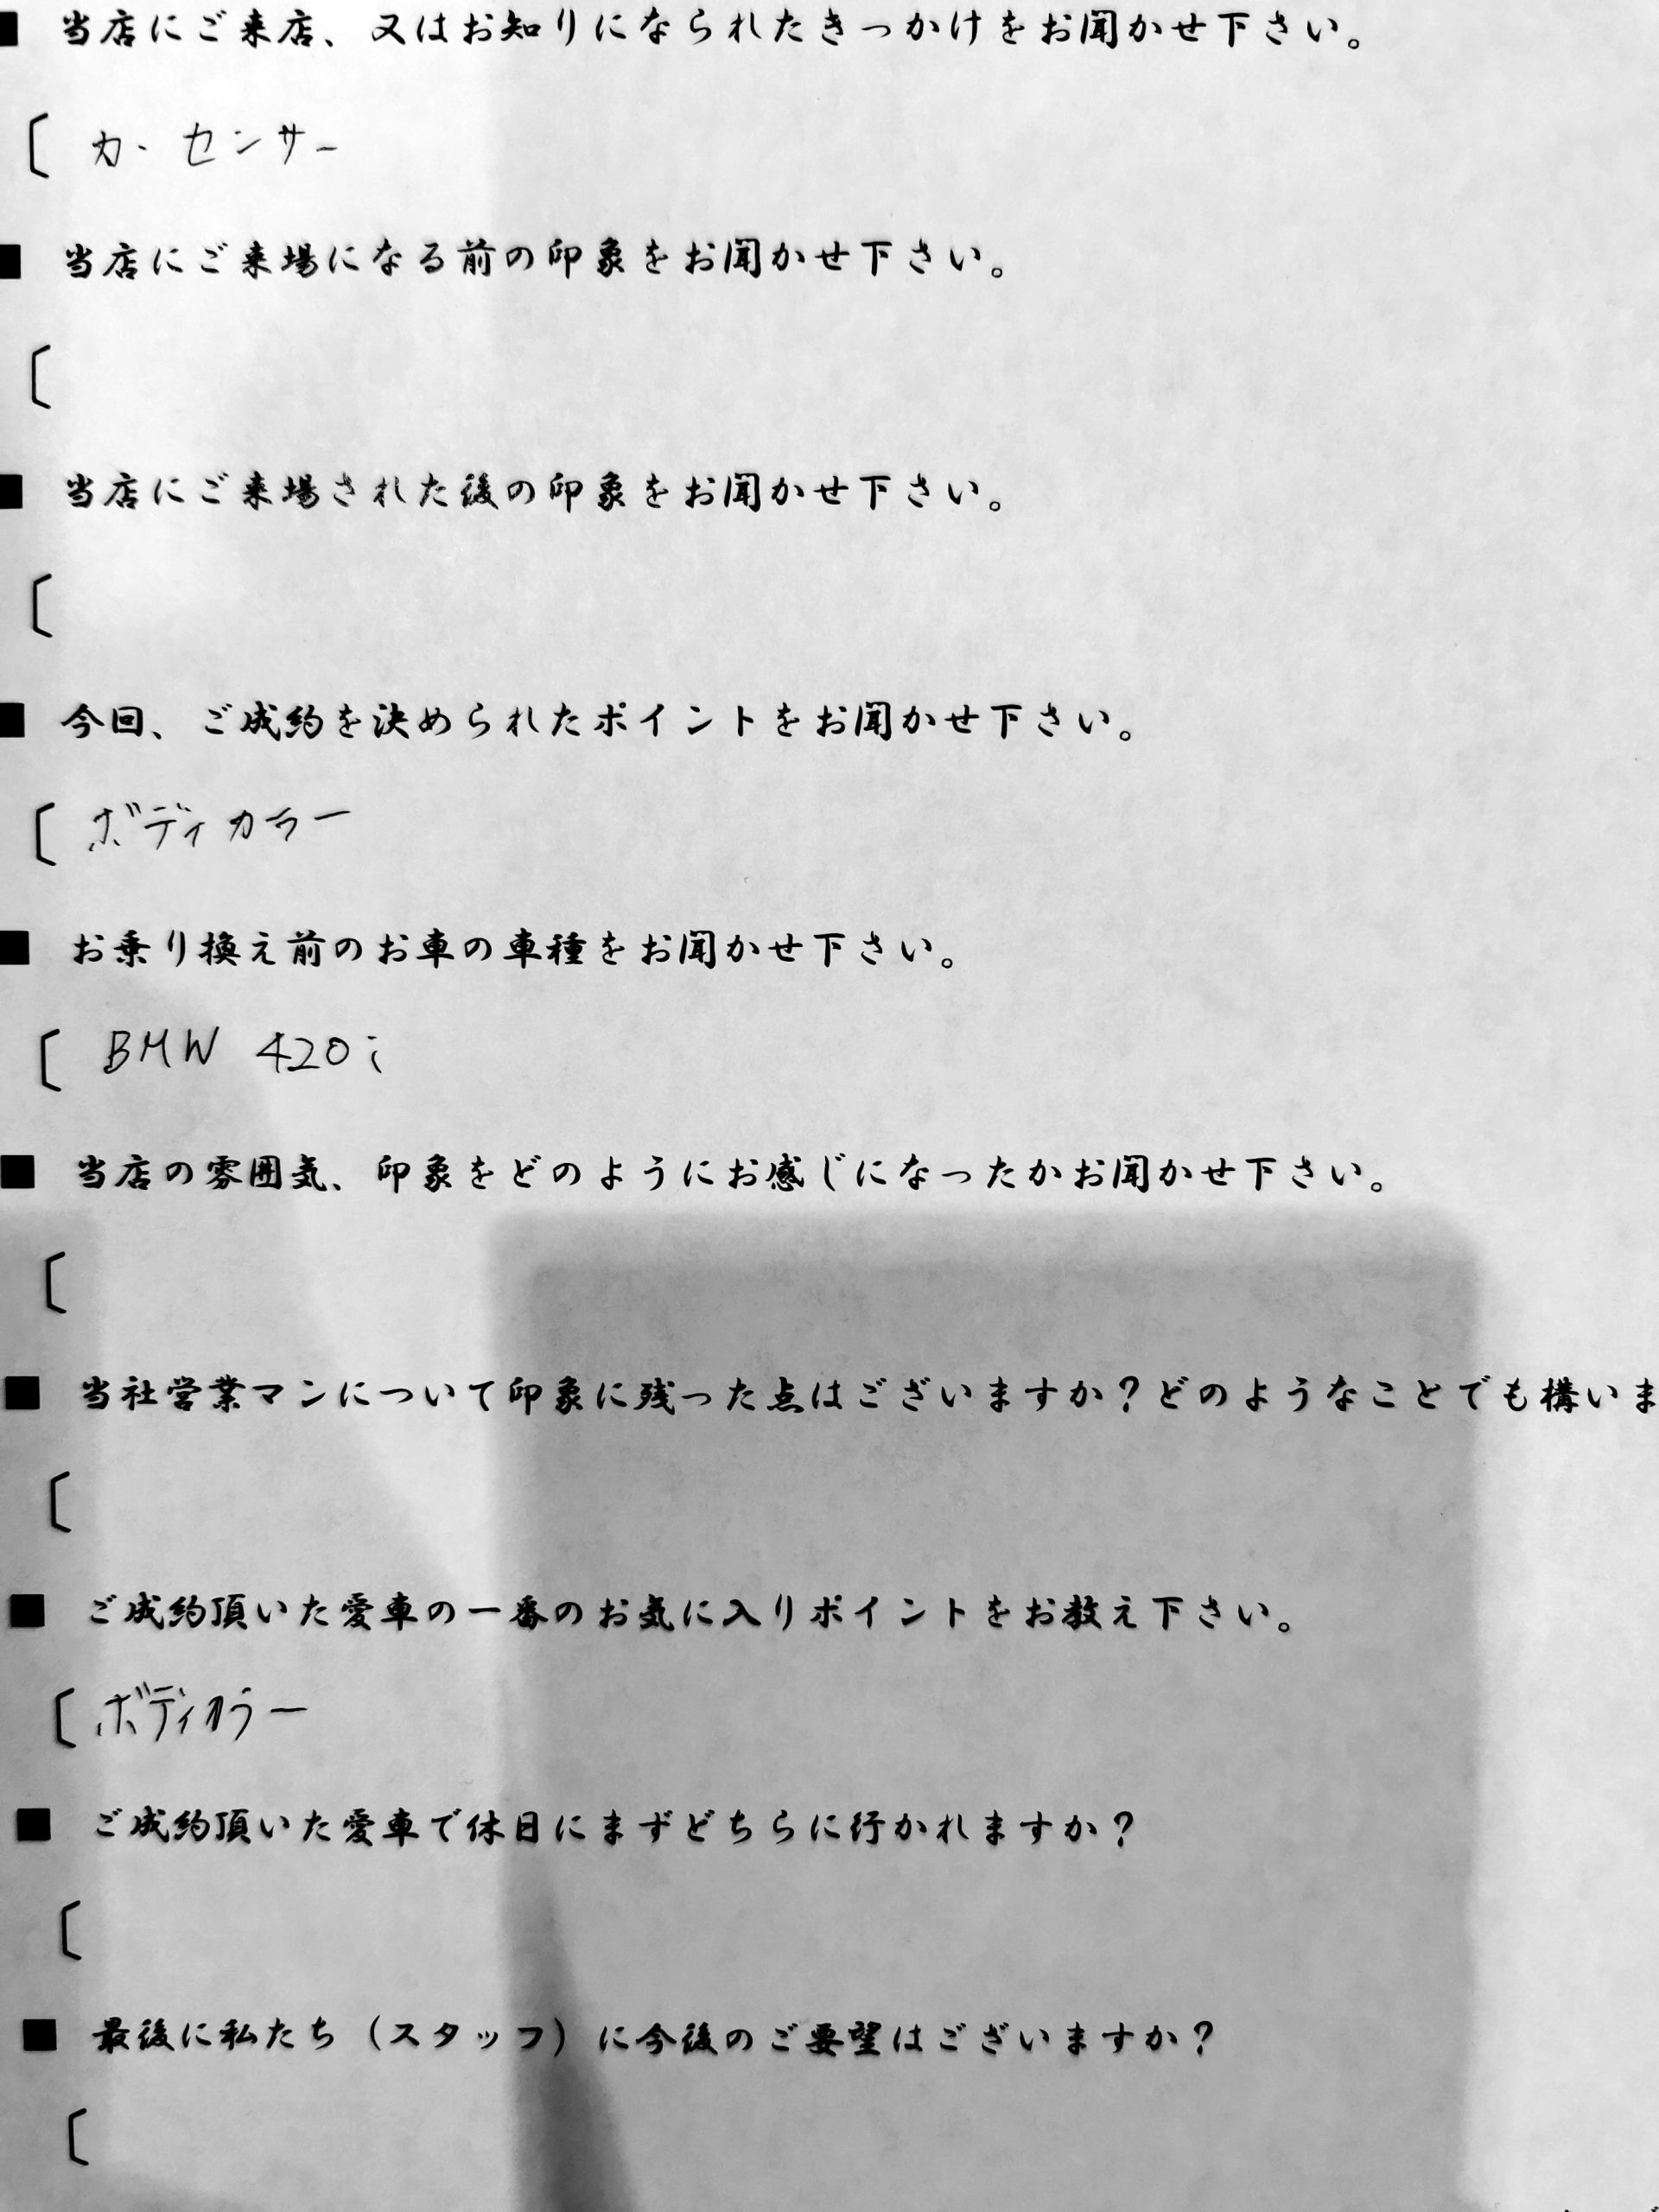 ■ 当店にご来店、又はお知りになられたきっかけをお聞かせ下さい。
〔 カーセンサー
■ 当店にご来場になる前の印象をお聞かせ下さい。
〔
■ 当店にご来場された後の印象をお聞かせ下さい。
〔
■ 今回、ご成約を決められたポイントをお聞かせ下さい。
〔 ボディカラー
■ お乗り換え前のお車の車種をお聞かせ下さい。
〔 BMW 420i
■ 当店の雰囲気、印象をどのようにお感じになったかお聞かせ下さい。
〔
■ 当社営業マンについて印象に残った点はございますか?どのようなことでも構いま
〔
■ ご成約頂いた愛車の一番のお気に入りポイントをお教え下さい。
〔 ボディカラー
■ ご成約頂いた愛車で休日にまずどちらに行かれますか?
〔
■ 最後に私たち(スタッフ)に今後のご要望はございますか?
〔